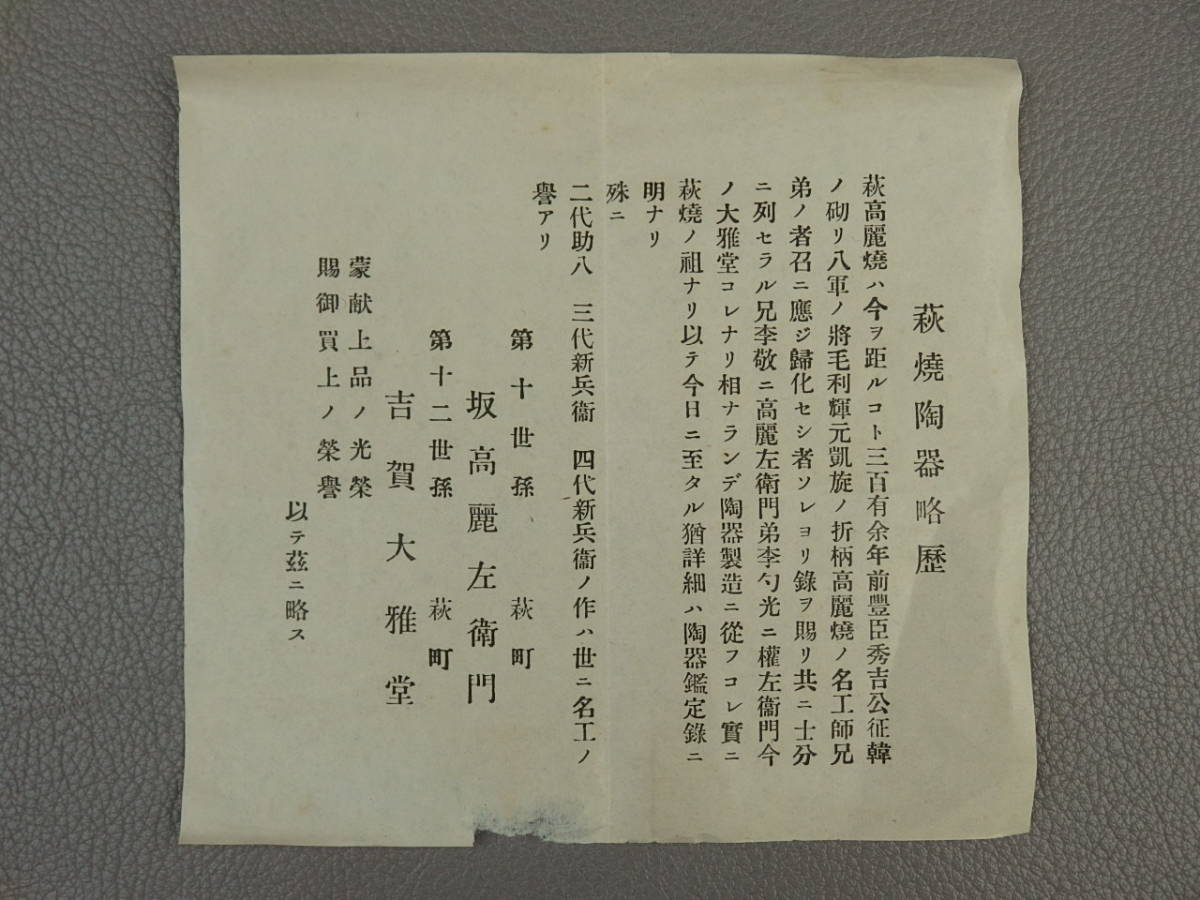 萩燒陶器略歷
萩高麗燒ハ今ヲ距ルコト三百有余年前豐臣秀吉公征韓
ノ砌リ八軍ノ將毛利輝元凱旋ノ折柄高麗燒ノ名工師兄
弟ノ者召ニ應ジ歸化セシ者ソレヨリ錄ヲ賜リ共ニ士分
ニ列セラル兄李敬ニ高麗左衛門弟李勺光ニ權左衞門今
ノ大雅堂コレナリ相ナランデ陶器製造ニ從フコレ實ニ
萩燒ノ祖ナリ以テ今日ニ至タル猶詳細ハ陶器鑑定錄ニ
明ナリ
殊ニ
二代助八 三代新兵衞 四代新兵衞ノ作ハ世ニ名工ノ
譽アリ
第十世孫 萩町
坂高麗左衛門
第十二世孫 萩町
吉賀大雅堂
蒙献上品ノ光榮
賜御買上ノ榮譽
以テ茲ニ略ス